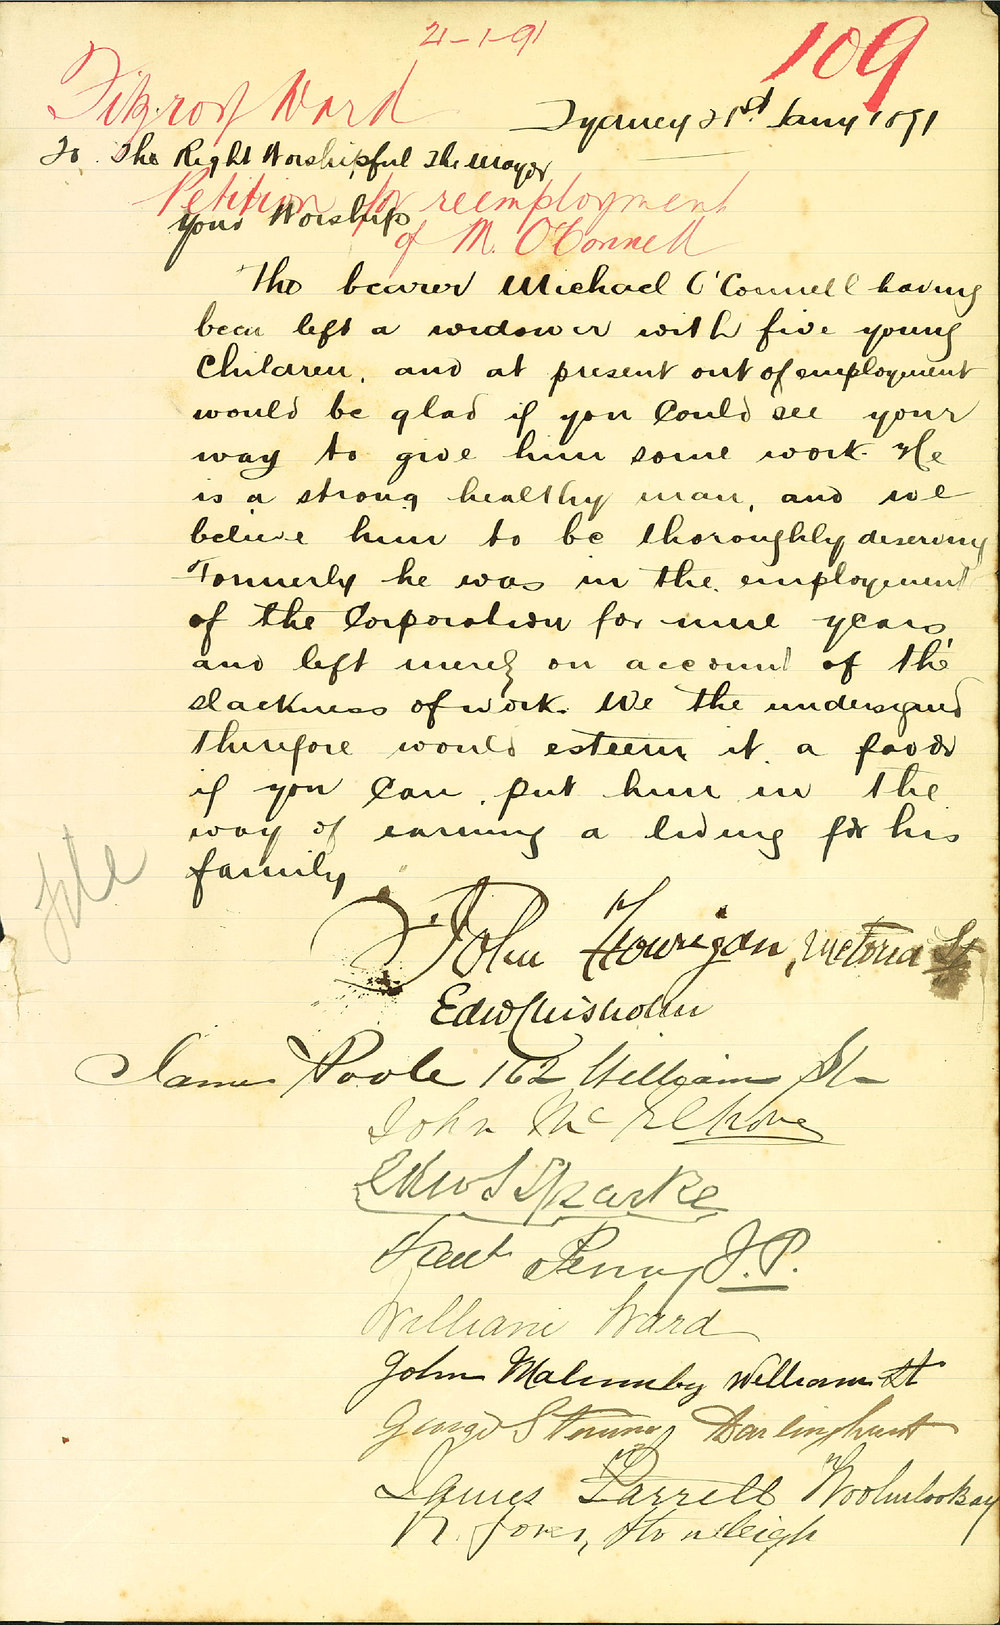 21-1-91
109
Fitzroy Ward
Sydney 21st. Jany 1891
To The Right Worshipful The Mayor
Petition for reemployment
Your Worship
of M. O'Connell
The bearer Michael O'Connell having
been left a widower with five young
children, and at present out of employment
would be glad if you could see your
way to give him some work. He
is a strong healthy man, and we
believe him to be thoroughly deserving
Formerly he was in the employment
of the Corporation for nine years,
and left merely on account of the
slackness of work. We the undersigned
therefore would esteem it a favor
if you can put him in the
way of earning a living for his
family
File
John Hourigan, Victoria St
Edw Chisholm
James Poole 162 William St
John Mc
Edw S Sparke
Penny J.P.
William Ward
John William St
George Darlinghurst
James Farrell Woolloomooloo Bay
Jones,